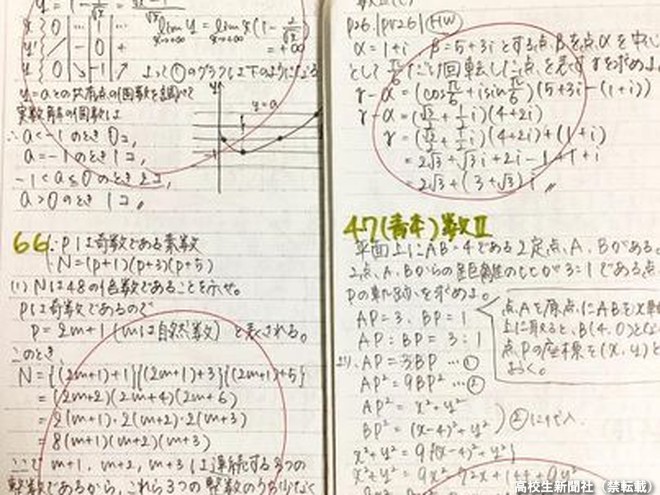 x 0 … … …
y' - 0 +
y 0 ↘ -1 ↗
lim y = lim x(1 - 2/√x)
x→+∞ x→+∞
= +∞
よって①のグラフは下のようになる
y=aとの共有点の個数を調べて
実数解の個数は
∴ a<-1のとき 0コ,
a=-1のとき 1コ,
-1<a≦0のとき 2コ,
a>0のとき 1コ,,
y
y=a
-1
66. Pは奇数である素数
N=(p+1)(p+3)(p+5)
(1) Nは48の倍数であることを示せ。
Pは奇数であるので
P=2m+1 (mは自然数) と表される。
このとき,
N={(2m+1)+1}{(2m+1)+3}{(2m+1)+5}
=(2m+2)(2m+4)(2m+6)
=2(m+1)・2(m+2)・2(m+3)
=8(m+1)(m+2)(m+3)
ここで m+1, m+2, m+3は連続する3つの
整数であるから、これら3つの整数のうち少なく
HW
α=1+i β=5+3iとする点βを点αを中心
として π/6だけ回転した点を表すγを求めよ。
γ-α=(cosπ/6+isinπ/6)(5+3i-(1+i))
γ-α=(√3/2+1/2i)(4+2i)
γ=(√3/2+1/2i)(4+2i)+(1+i)
=2√3+√3i+2i-1+1+i
=2√3+(3+√3)i,,
47(青本)数Ⅱ
平面上にAB=4である2定点、A、Bがある。
2点、A、Bからの距離の比が3:1である点
Pの軌跡を求めよ。
AP=3、BP=1
AP:BP=3:1
より、AP=3BP …①
AP²=9BP² …②
AP²=x²+y²
BP²=(x-4)²+y²
②に代入
x²+y²=9{(x-4)²+y²}
x²+y²=9x²-72x+144+9y²
点Aを原点にABをx軸
上に取ると、B(4,0)となる
点Pの座標を(x,y)と
おく。
高校生新聞社（禁転載）